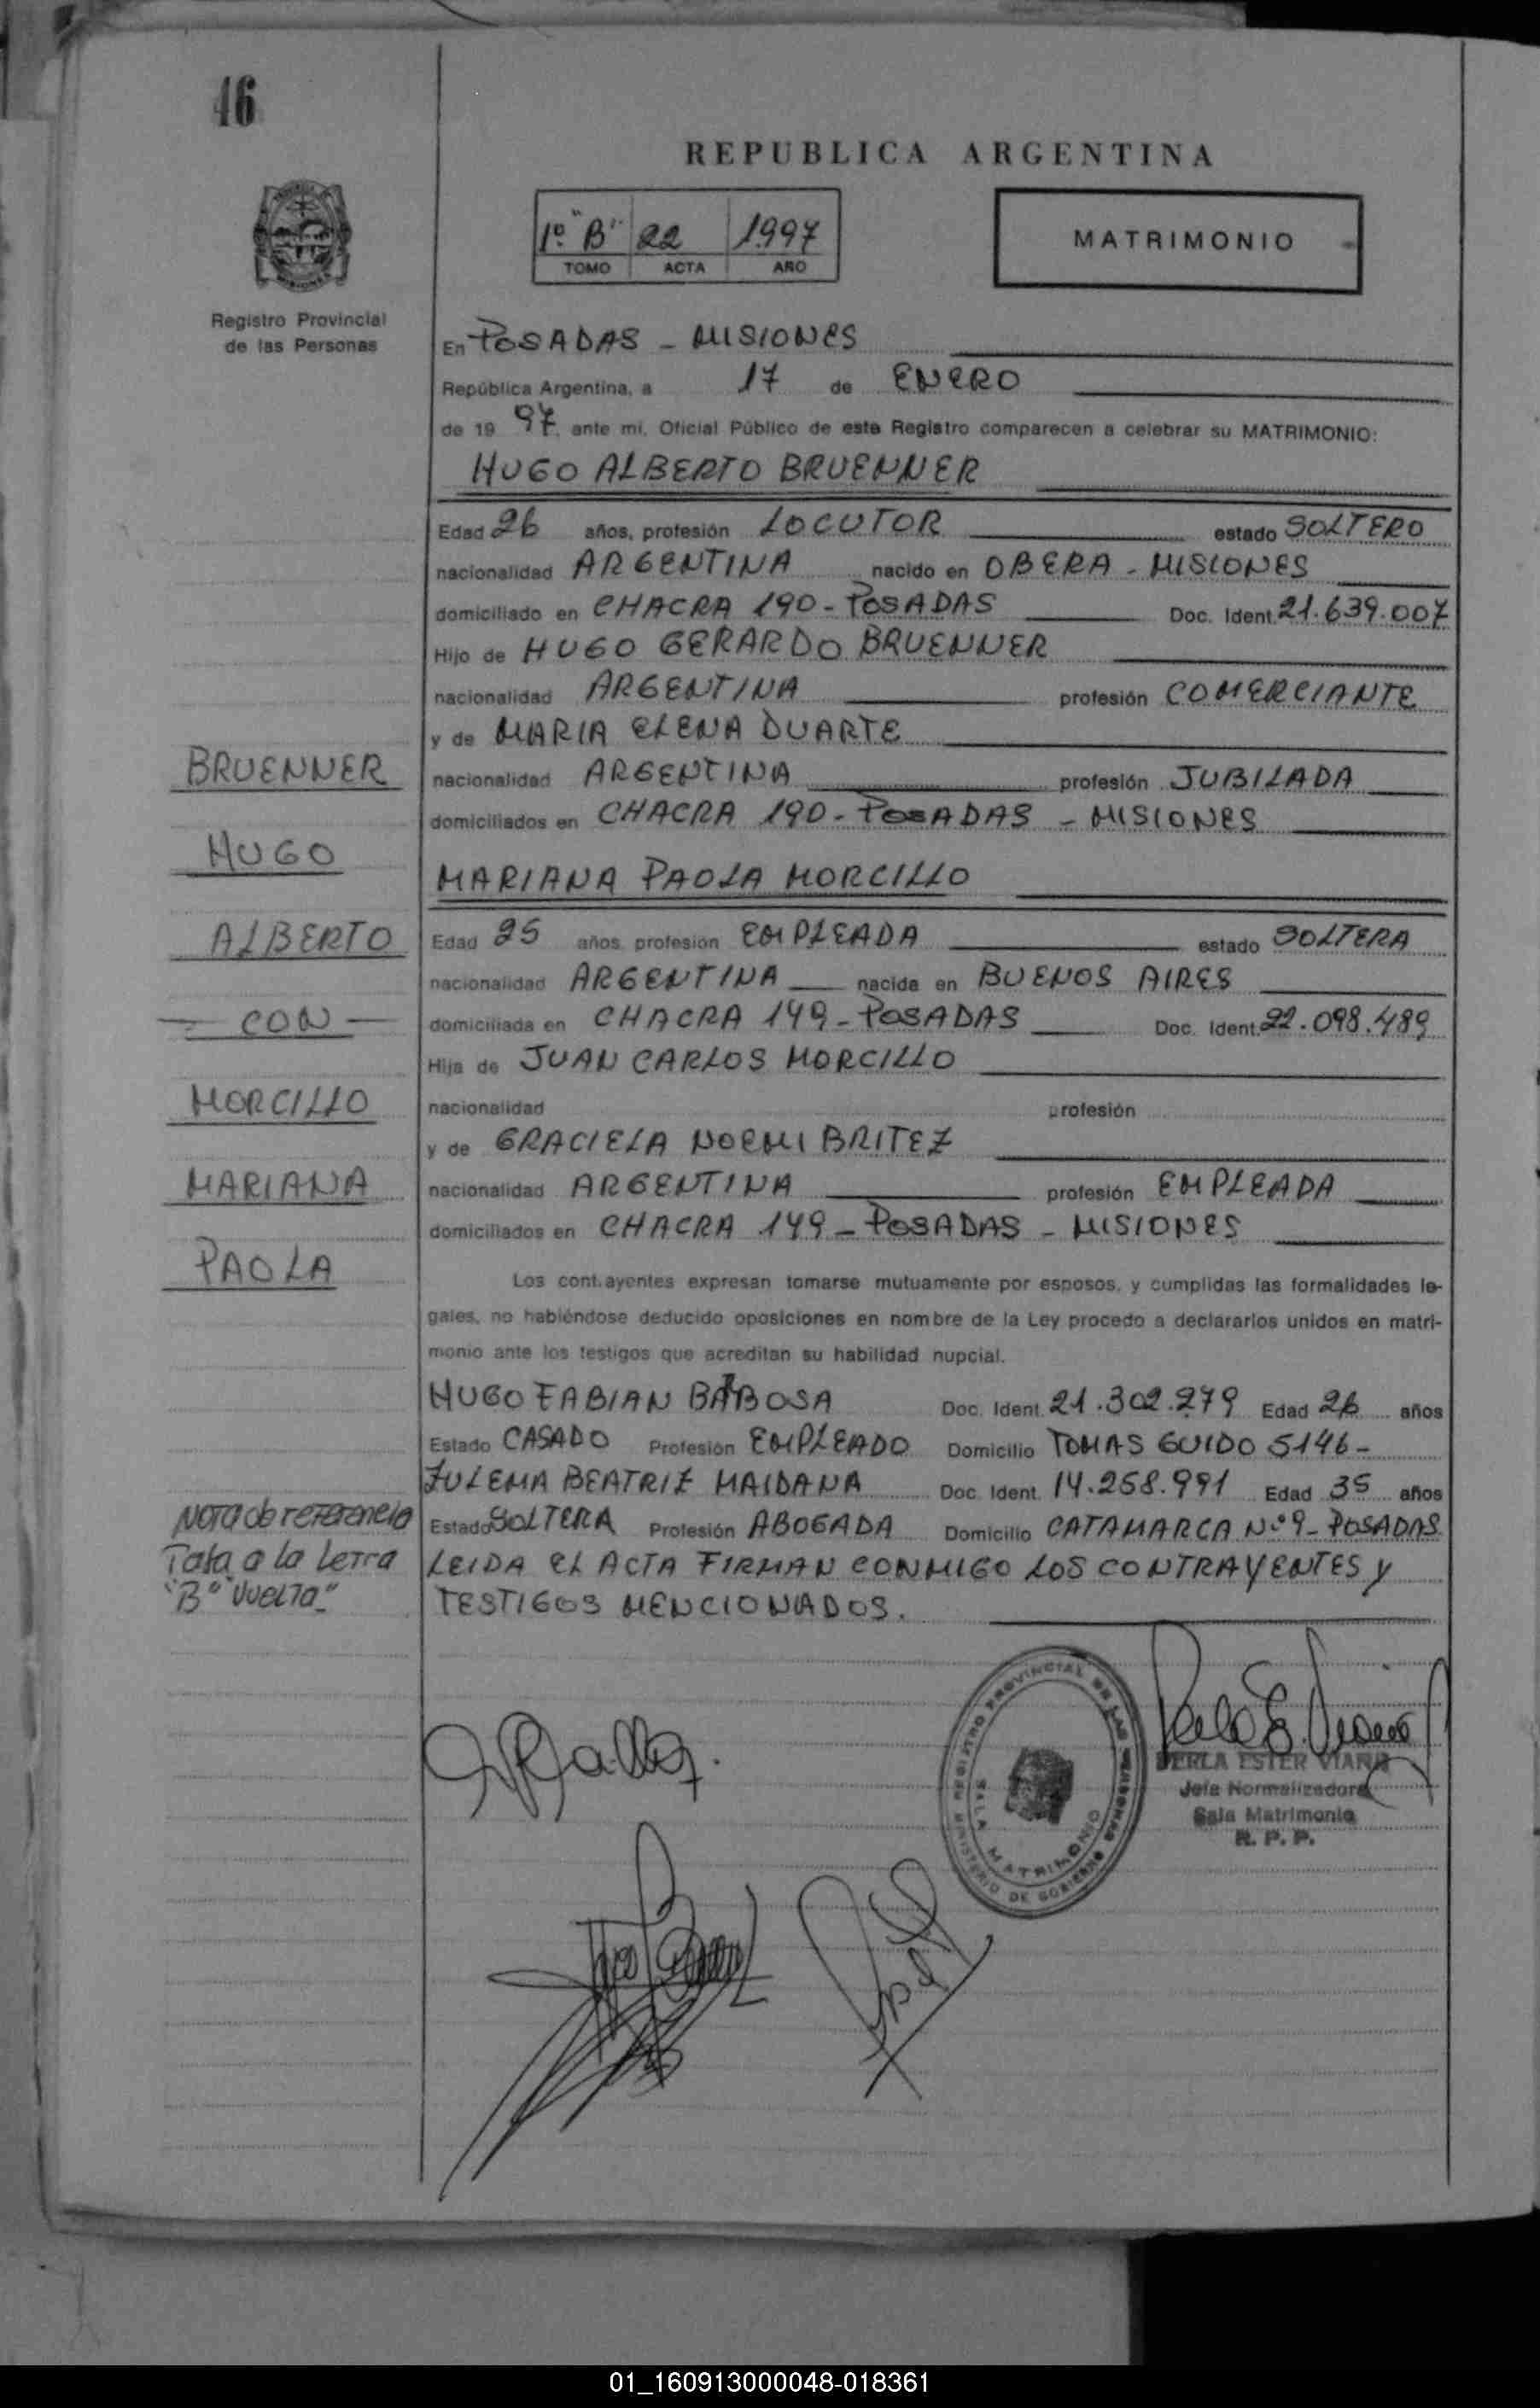 46
REPUBLICA ARGENTINA
1º "B" 22 1997
TOMO ACTA AÑO
MATRIMONIO
Registro Provincial
de las Personas
En POSADAS - MISIONES
República Argentina, a 17 de ENERO
de 19 97 ante mi, Oficial Público de este Registro comparecen a celebrar su MATRIMONIO:
HUGO ALBERTO BRUENNER
Edad 26 años, profesión LOCUTOR estado SOLTERO
nacionalidad ARGENTINA nacido en OBERA - MISIONES
domiciliado en CHACRA 190 - POSADAS Doc. Ident. 21.639.007
Hijo de HUGO GERARDO BRUENNER
nacionalidad ARGENTINA profesión COMERCIANTE
y de MARIA ELENA DUARTE
nacionalidad ARGENTINA profesión JUBILADA
domiciliados en CHACRA 190 - POSADAS - MISIONES
MARIANA PAOLA MORCILLO
Edad 25 años profesión EMPLEADA estado SOLTERA
nacionalidad ARGENTINA nacida en BUENOS AIRES
domiciliada en CHACRA 149 - POSADAS Doc. Ident. 22.098.489
Hija de JUAN CARLOS MORCILLO
nacionalidad profesión
y de GRACIELA NOEMI BRITEZ
nacionalidad ARGENTINA profesión EMPLEADA
domiciliados en CHACRA 149 - POSADAS - MISIONES
BRUENNER
HUGO
ALBERTO
- CON -
MORCILLO
MARIANA
PAOLA
Los contrayentes expresan tomarse mutuamente por esposos, y cumplidas las formalidades le-
gales, no habiéndose deducido oposiciones en nombre de la Ley procedo a declararlos unidos en matri-
monio ante los testigos que acreditan su habilidad nupcial.
HUGO FABIAN BARBOSA Doc. Ident. 21.302.279 Edad 26 años
Estado CASADO Profesión EMPLEADO Domicilio TOMAS GUIDO 5146 -
ZULEMA BEATRIZ MAIDANA Doc. Ident. 14.258.991 Edad 35 años
Estado SOLTERA Profesión ABOGADA Domicilio CATAMARCA Nº 9 - POSADAS
LEIDA EL ACTA FIRMAN CONMIGO LOS CONTRAYENTES Y
TESTIGOS MENCIONADOS.
Nota de referencia
Tasa a la Letra
"B" Vuelta -
REGISTRO PROVINCIAL DE LAS PERSONAS
MINISTERIO DE GOBIERNO
SALA MATRIMONIO
PERLA ESTER VIANA
Jefa Normalizadora
Sala Matrimonio
R. P. P.
01_160913000048-018361